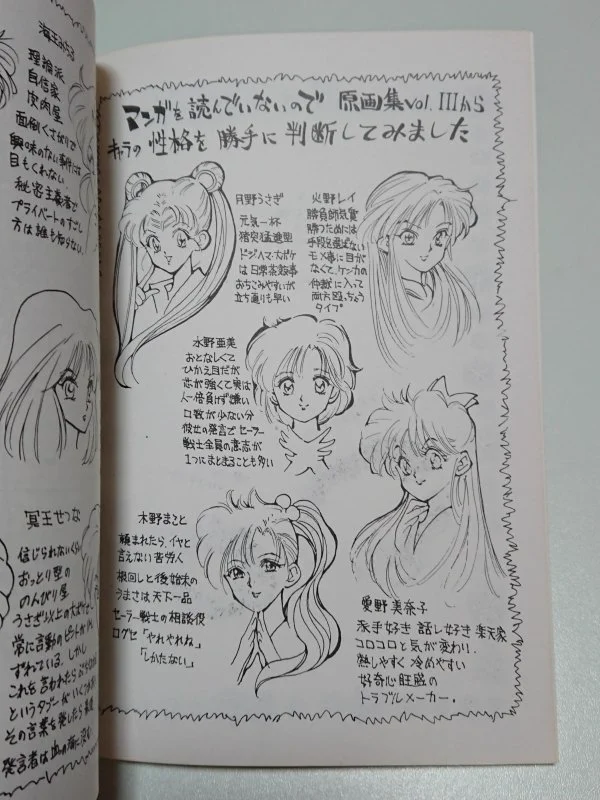 マンガを読んでいないので 原画集vol.IIIから
キャラの性格を勝手に判断してみました
月野うさぎ
元気一杯
猪突猛進型
ドジ、ヘマ、大ボケ
は日常茶飯事
おちこみやすいが
立ち直りも早い
火野レイ
勝負師気質
勝つためには
手段を選ばない
モメ事に目が
なくて、ケンカの
仲裁に入って
両方殴っちゃう
タイプ
水野亜美
おとなしくて
ひかえ目だが
芯が強くて実は
人一倍負けず嫌い
口数が少ない分
彼女の発言でセーラー
戦士全員の意志が
1つにまとまることも多い
木野まこと
頼まれたら、イヤと
言えない苦労人
根回しと後始末の
うまさは天下一品
セーラー戦士の相談役
口グセ「やれやれね」
「しかたない」
愛野美奈子
派手好き 話し好き 楽天家
コロコロと気が変わり、
熱しやすく冷めやすい
好奇心旺盛の
トラブルメーカー。
海王みちる
理論派
自信家
皮肉屋
面倒くさがりで
興味のない事件には
目もくれない
秘密主義者で
プライベートのすごし
方は誰も知らない
冥王せつな
信じられないくらい
おっとり型の
のんびり屋
うさぎ以上の大ボケ
常に言動のピントが
ずれている。しかし
これを言われたら
というタブーがいくつか
その言葉を発したら最後
発言者は血の海に沈む